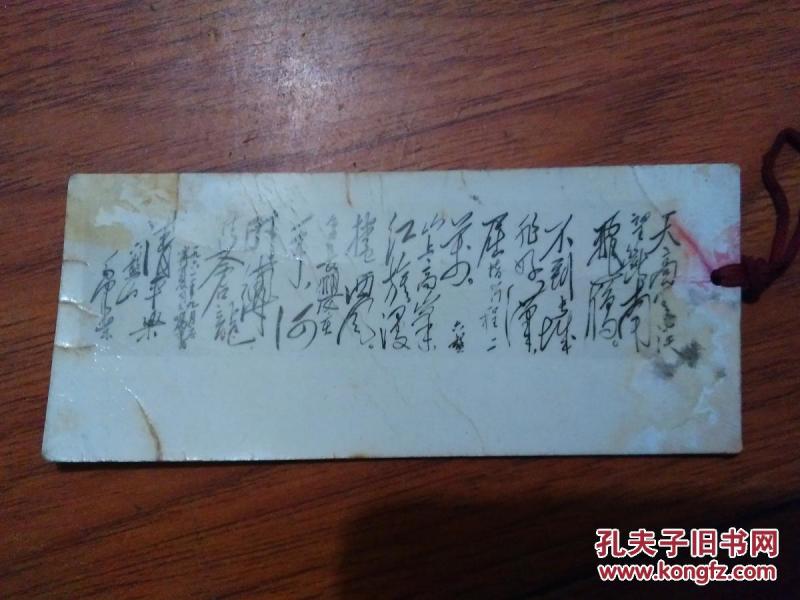 天高云淡
望断南
飞雁。
不到长城
非好汉，
屈指行程二
万。
六盘
山上高峰
红旗漫
捲西风。
今日长缨在
手，何
时缚
住苍龙
清平乐
六盘山
毛泽东
孔夫子旧书网
www.kongfz.com